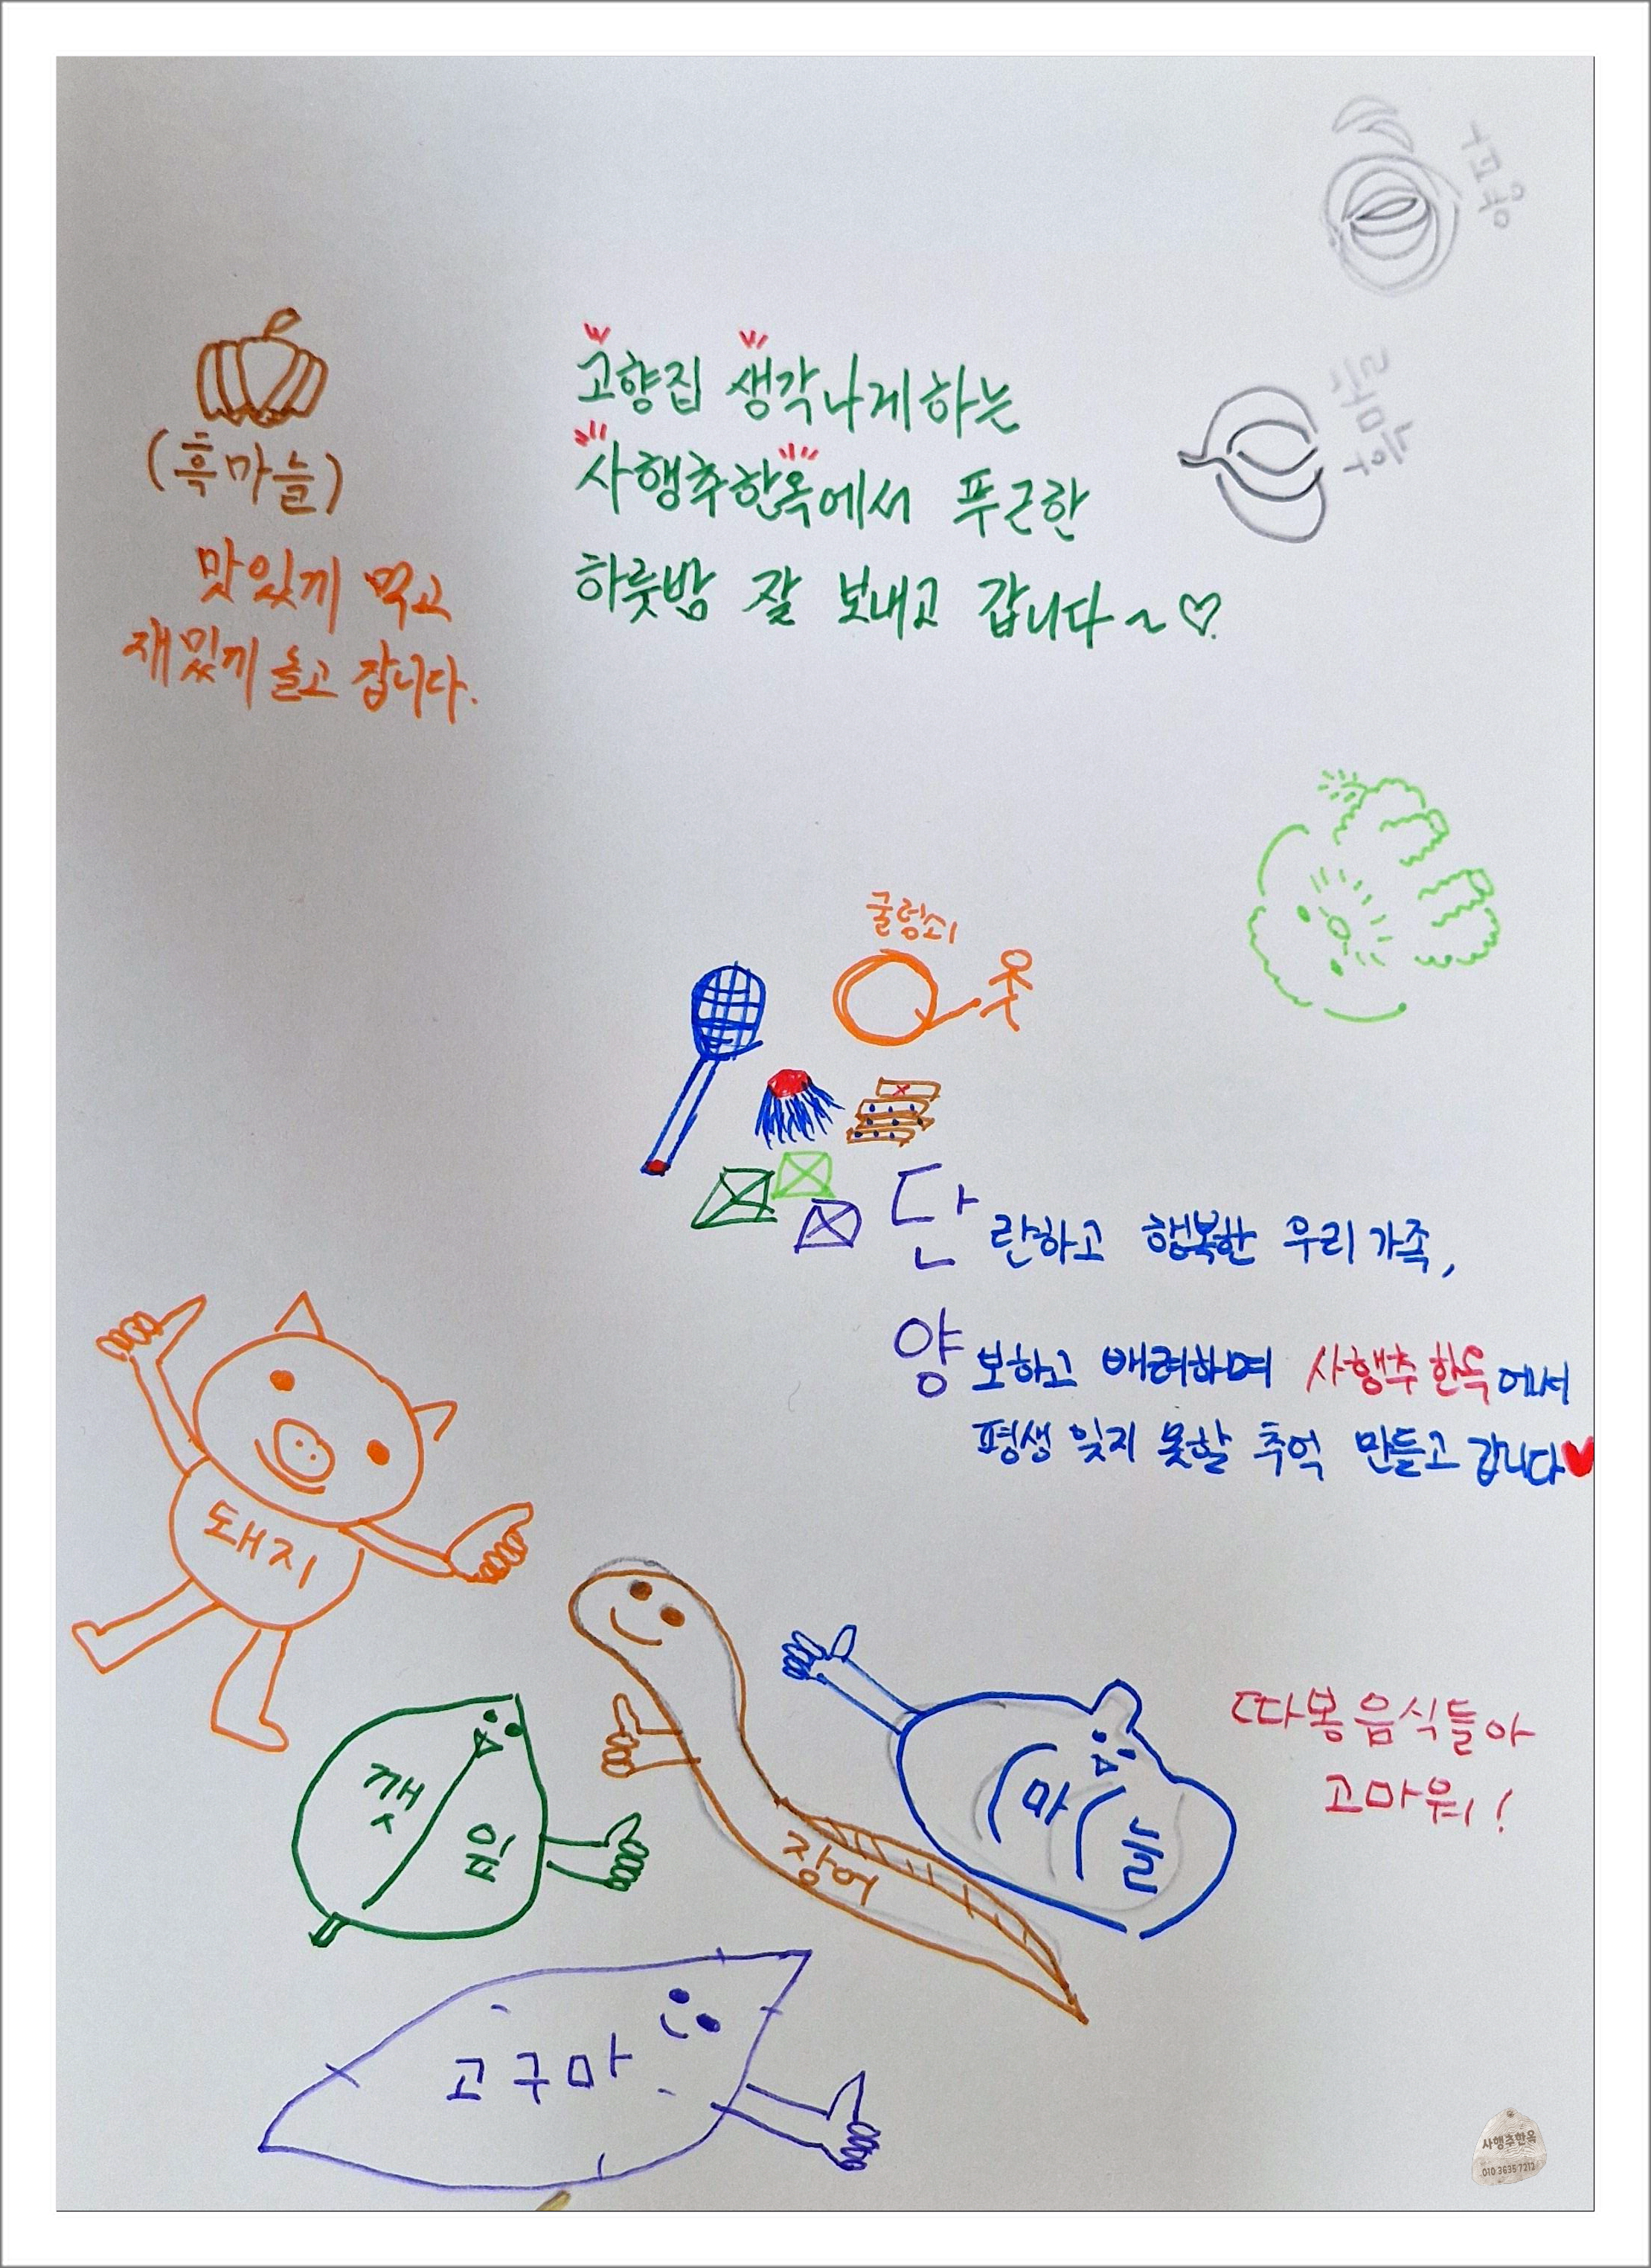 (흑마늘)
맛있께 먹고
재밌께 놀고 갑니다.
고향집 생각나게 하는
사행추한옥에서 푸근한
하룻밤 잘 보내고 갑니다~♡
굴렁쇠
단란하고 행복한 우리 가족,
양보하고 배려하며 사행추한옥에서
평생 잊지 못할 추억 만들고 갑니다♥
돼지
깻잎
장어
마늘
고구마
따봉 음식들아
고마워!
사행추한옥
010 3635 7212